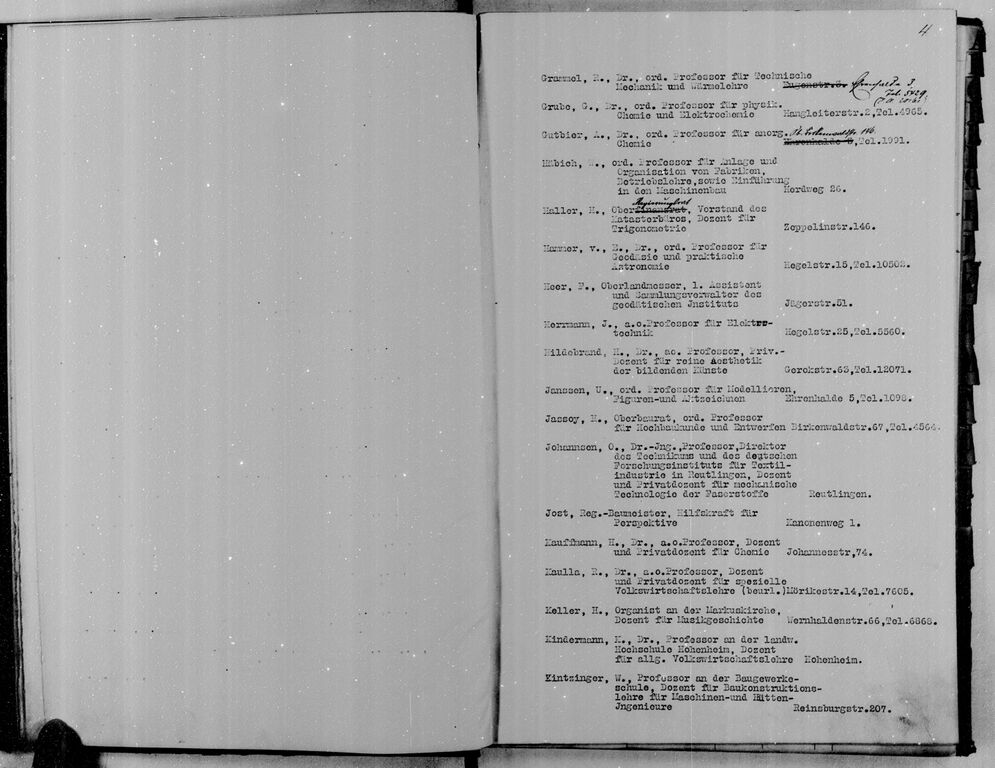 4
Grammel, R., Dr., ord. Professor für Technische
Mechanik und Wärmelehre Eugenstr. 3
Tel. 5429.
Grube, G., Dr., ord. Professor für physik.
Chemie und Elektrochemie Hangleiterstr.2,Tel.4965.
Gutbier, A., Dr., ord. Professor für anorg.
Chemie Ehrenhalde ,Tel.1991.
Häbich, W., ord. Professor für Anlage und
Organisation von Fabriken,
Betriebslehre,sowie Einführung
in den Maschinenbau Herdweg 26.
Regierungsrat
Haller, M., Oberfinanzrat, Vorstand des
Katasterbüros, Dozent für
Trigonometrie Zeppelinstr.146.
Hammer, v., E., Dr., ord. Professor für
Geodäsie und praktische
Astronomie Hegelstr.15,Tel.10502.
Heer, F., Oberlandmesser, 1. Assistent
und Sammlungsverwalter des
geodätischen Jnstituts Jägerstr.51.
Herrmann, J., a.o.Professor für Elektro-
technik Hegelstr.25,Tel.5560.
Hildebrand, H., Dr., ao. Professor, Priv.-
Dozent für reine Aesthetik
der bildenden Künste Gerokstr.63,Tel.12071.
Janssen, U., ord. Professor für Modellieren,
Figuren-und Aktzeichnen Ehrenhalde 5,Tel.1098.
Jassoy, H., Oberbaurat, ord. Professor
für Hochbaukunde und Entwerfen Birkenwaldstr.67,Tel.4564.
Johannsen, O., Dr.-Jng.,Professor,Direktor
des Technikums und des deutschen
Forschungsinstituts für Textil-
industrie in Reutlingen, Dozent
und Privatdozent für mechanische
Technologie der Faserstoffe Reutlingen.
Jost, Reg.-Baumeister, Hilfskraft für
Perspektive Kanonenweg 1.
Kauffmann, H., Dr., a.o.Professor, Dozent
und Privatdozent für Chemie Johannesstr,74.
Kaulla, R., Dr., a.o.Professor, Dozent
und Privatdozent für spezielle
Volkswirtschaftslehre (beurl.)Mörikestr.14,Tel.7605.
Keller, H., Organist an der Markuskirche,
Dozent für Musikgeschichte Wernhaldenstr.66,Tel.6868.
Kindermann, K., Dr., Professor an der landw.
Hochschule Hohenheim, Dozent
für allg. Volkswirtschaftslehre Hohenheim.
Kintzinger, W., Professor an der Baugewerke-
schule, Dozent für Baukonstruktions-
lehre für Maschinen-und Hütten-
Jngenieure Reinsburgstr.207.